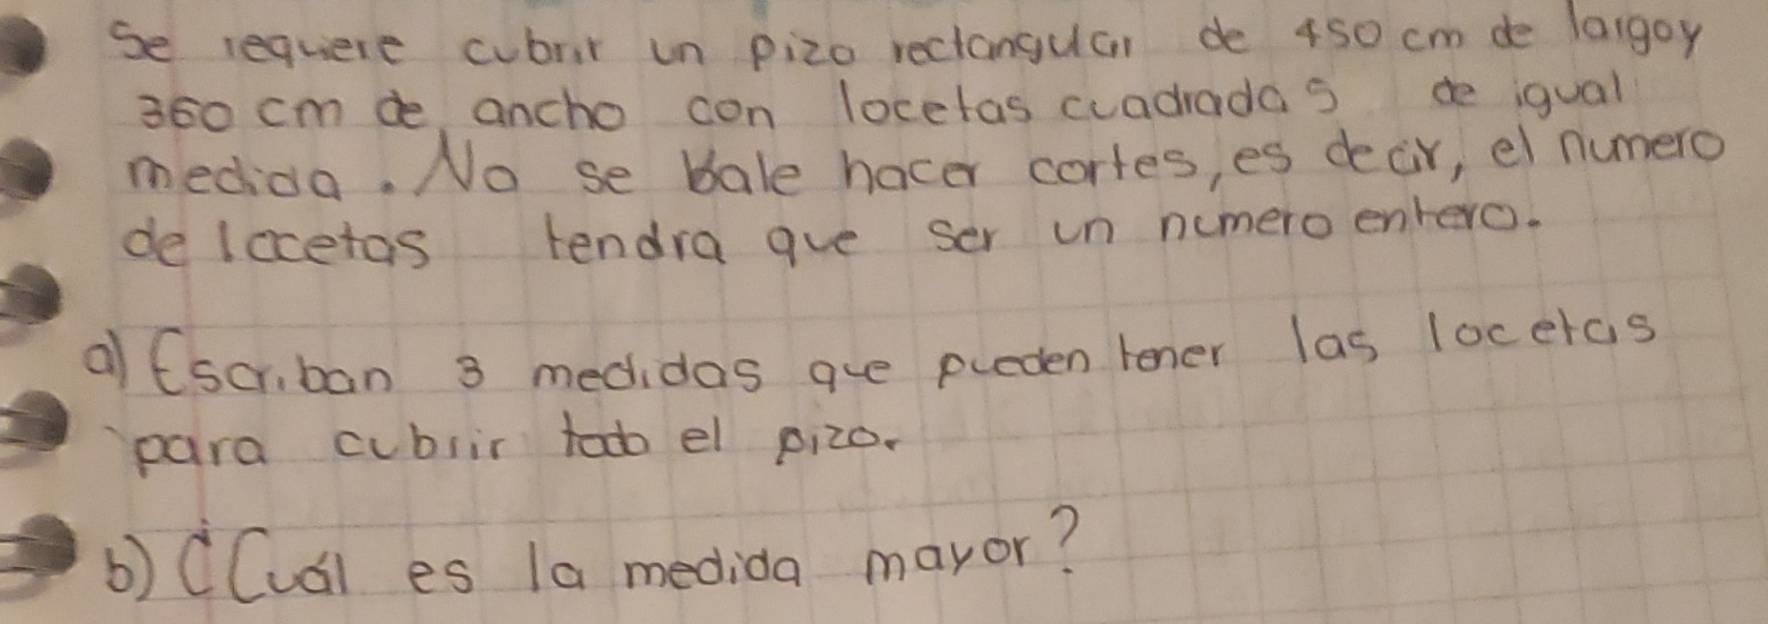 Se requiere cubrir un pizo rectangular de 450 cm de largo y
360 cm de ancho con locetas cuadradas de igual
medida. No se bale hacer cortes, es decir, el numero
de locetas tendra que ser un numero entero.
a) Escriban 3 medidas que pueden tener las locetas
para cubrir todo el pizo.
b) ¿Cuál es la medida mayor?